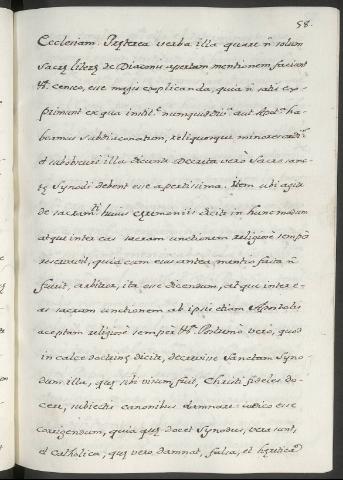 58.
Ecclesiam. Præterea verba illa quare ñ solum
Sacrę literę de Diaconis apertam mentionem faciant
tt.ª censeo, esse magis explicanda, quia ñ satis ex-
primunt ex qua instit.ᵉ numquid aut Apõt.ᵃ ha-
beamus subdiaconatum, reliquosque minores ord.ˢ
et subobscuri illa dicunt. Decreta verò Sacrosanc-
tę Synodi debent esse apertissima. Item ubi agit
de sacram.ᵗⁱ huius cęremoniis dicit in hunc modum
atque inter eas sacram unctionem religiosè sempẽ
reservavit, quia cum eius antea mentio facta ñ
fuerit, arbitror, ita esse dicendum, atque inter e-
as sacram unctionem ab ipsis etiam Apostolis
aceptam religiosè semper tt.ª Postremò verò, quod
in calce doctrinę dicit, decrevisse Sanctam Syno-
dum illa, quę sibi visum fuit, Christi fideles do-
cere, subiectis canonibus damnare iudico esse
corrigendum, quia quę docet Synodus, vera sunt,
et catholica; quę vero damnat, falsa, et hęretica